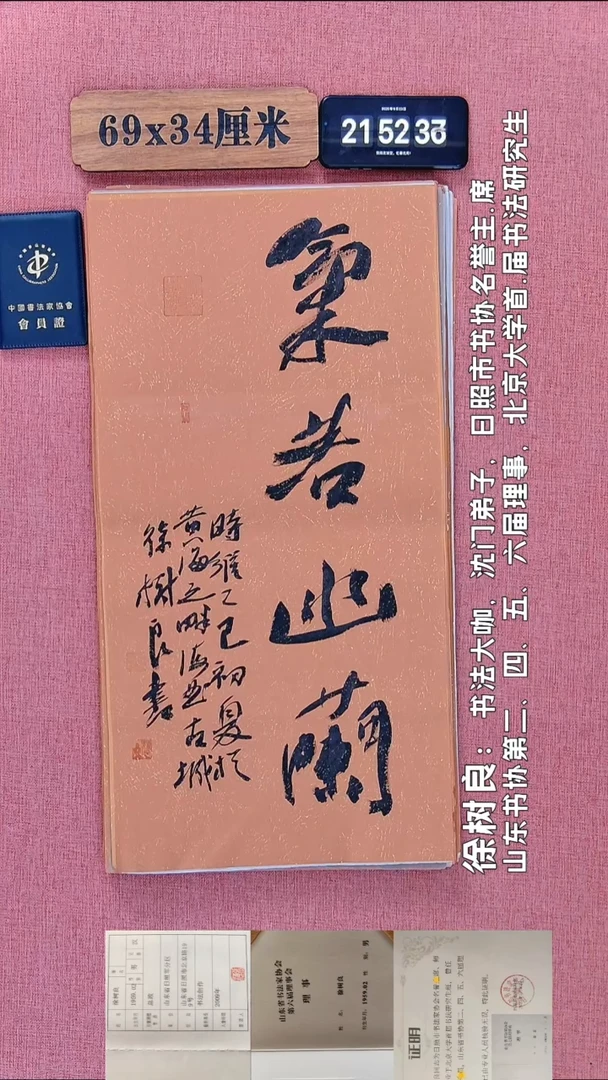 69x34厘米
21 52 36
中國書法家協會
會員證
氣若幽蘭
時維乙巳初夏於
黄海之畔海曲古城
徐樹良書
徐树良：书法大咖，沈门弟子，日照市书协名誉主.席
山东书协第二、四、五、六届理事，北京大学首.届书法研究生
山东省书法家协会
第六届理事会
理事
徐树良
男
1959.02
证明